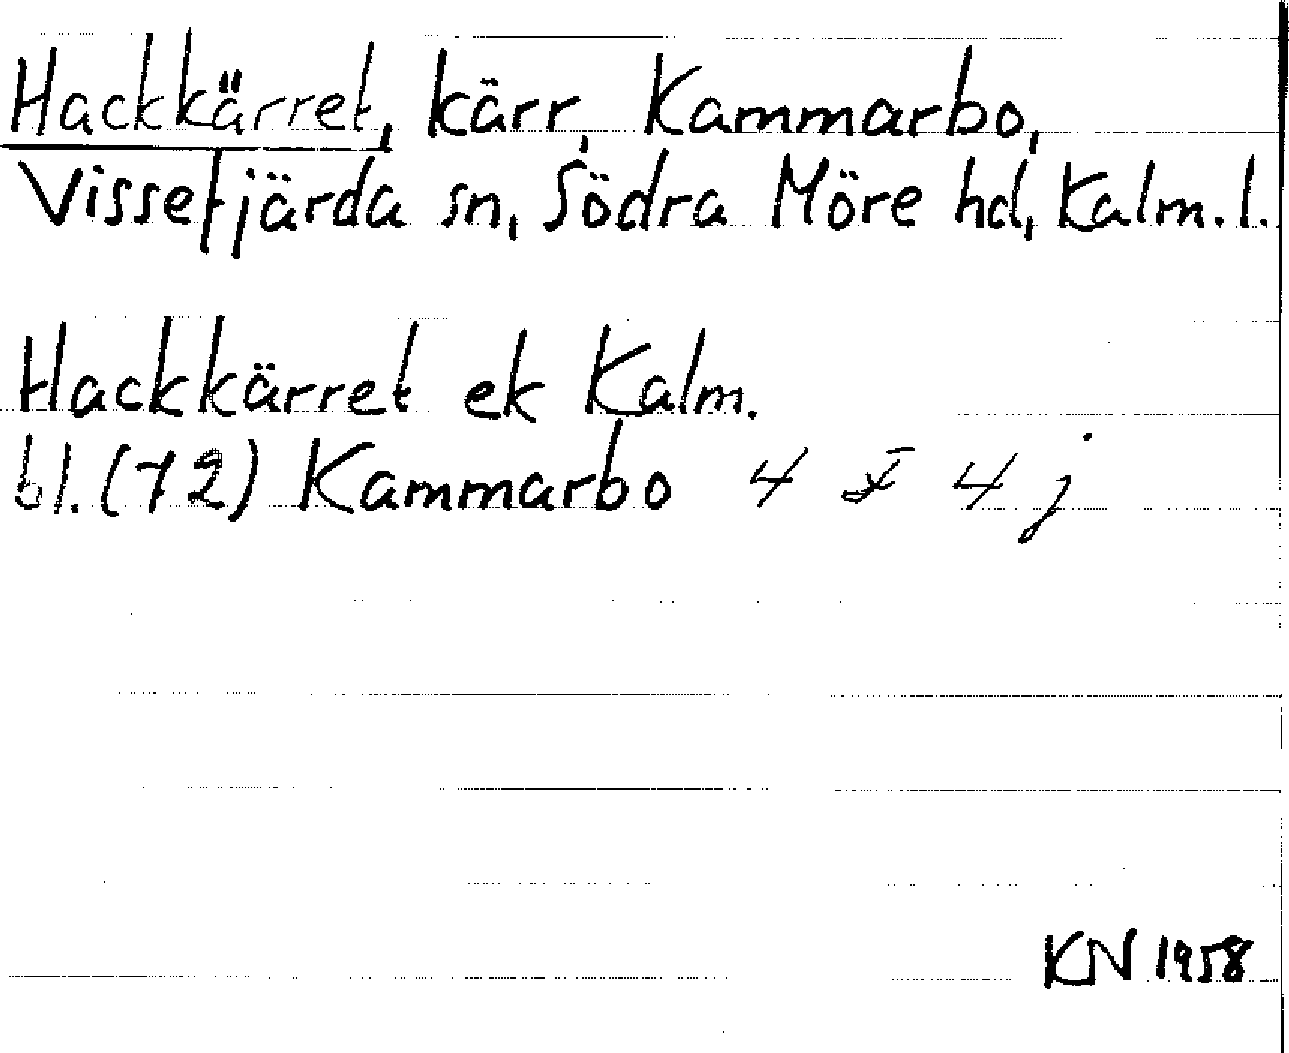 Hackkärret, kärr, Kammarbo,
Vissefjärda sn, Södra Möre hd, Kalm. l.
Hackkärret ek Kalm.
bl. (72) Kammarbo 4 F 4 j
KN 1958